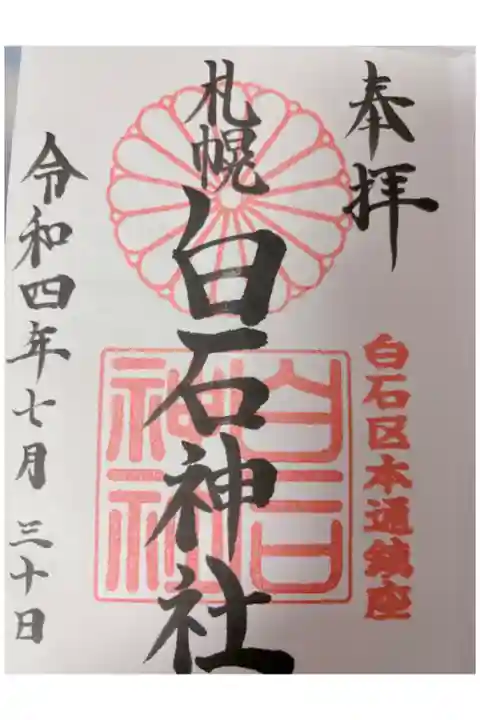 奉拝
白石区本通鎮座
札幌
白石神社
白石神社
令和四年七月三十日